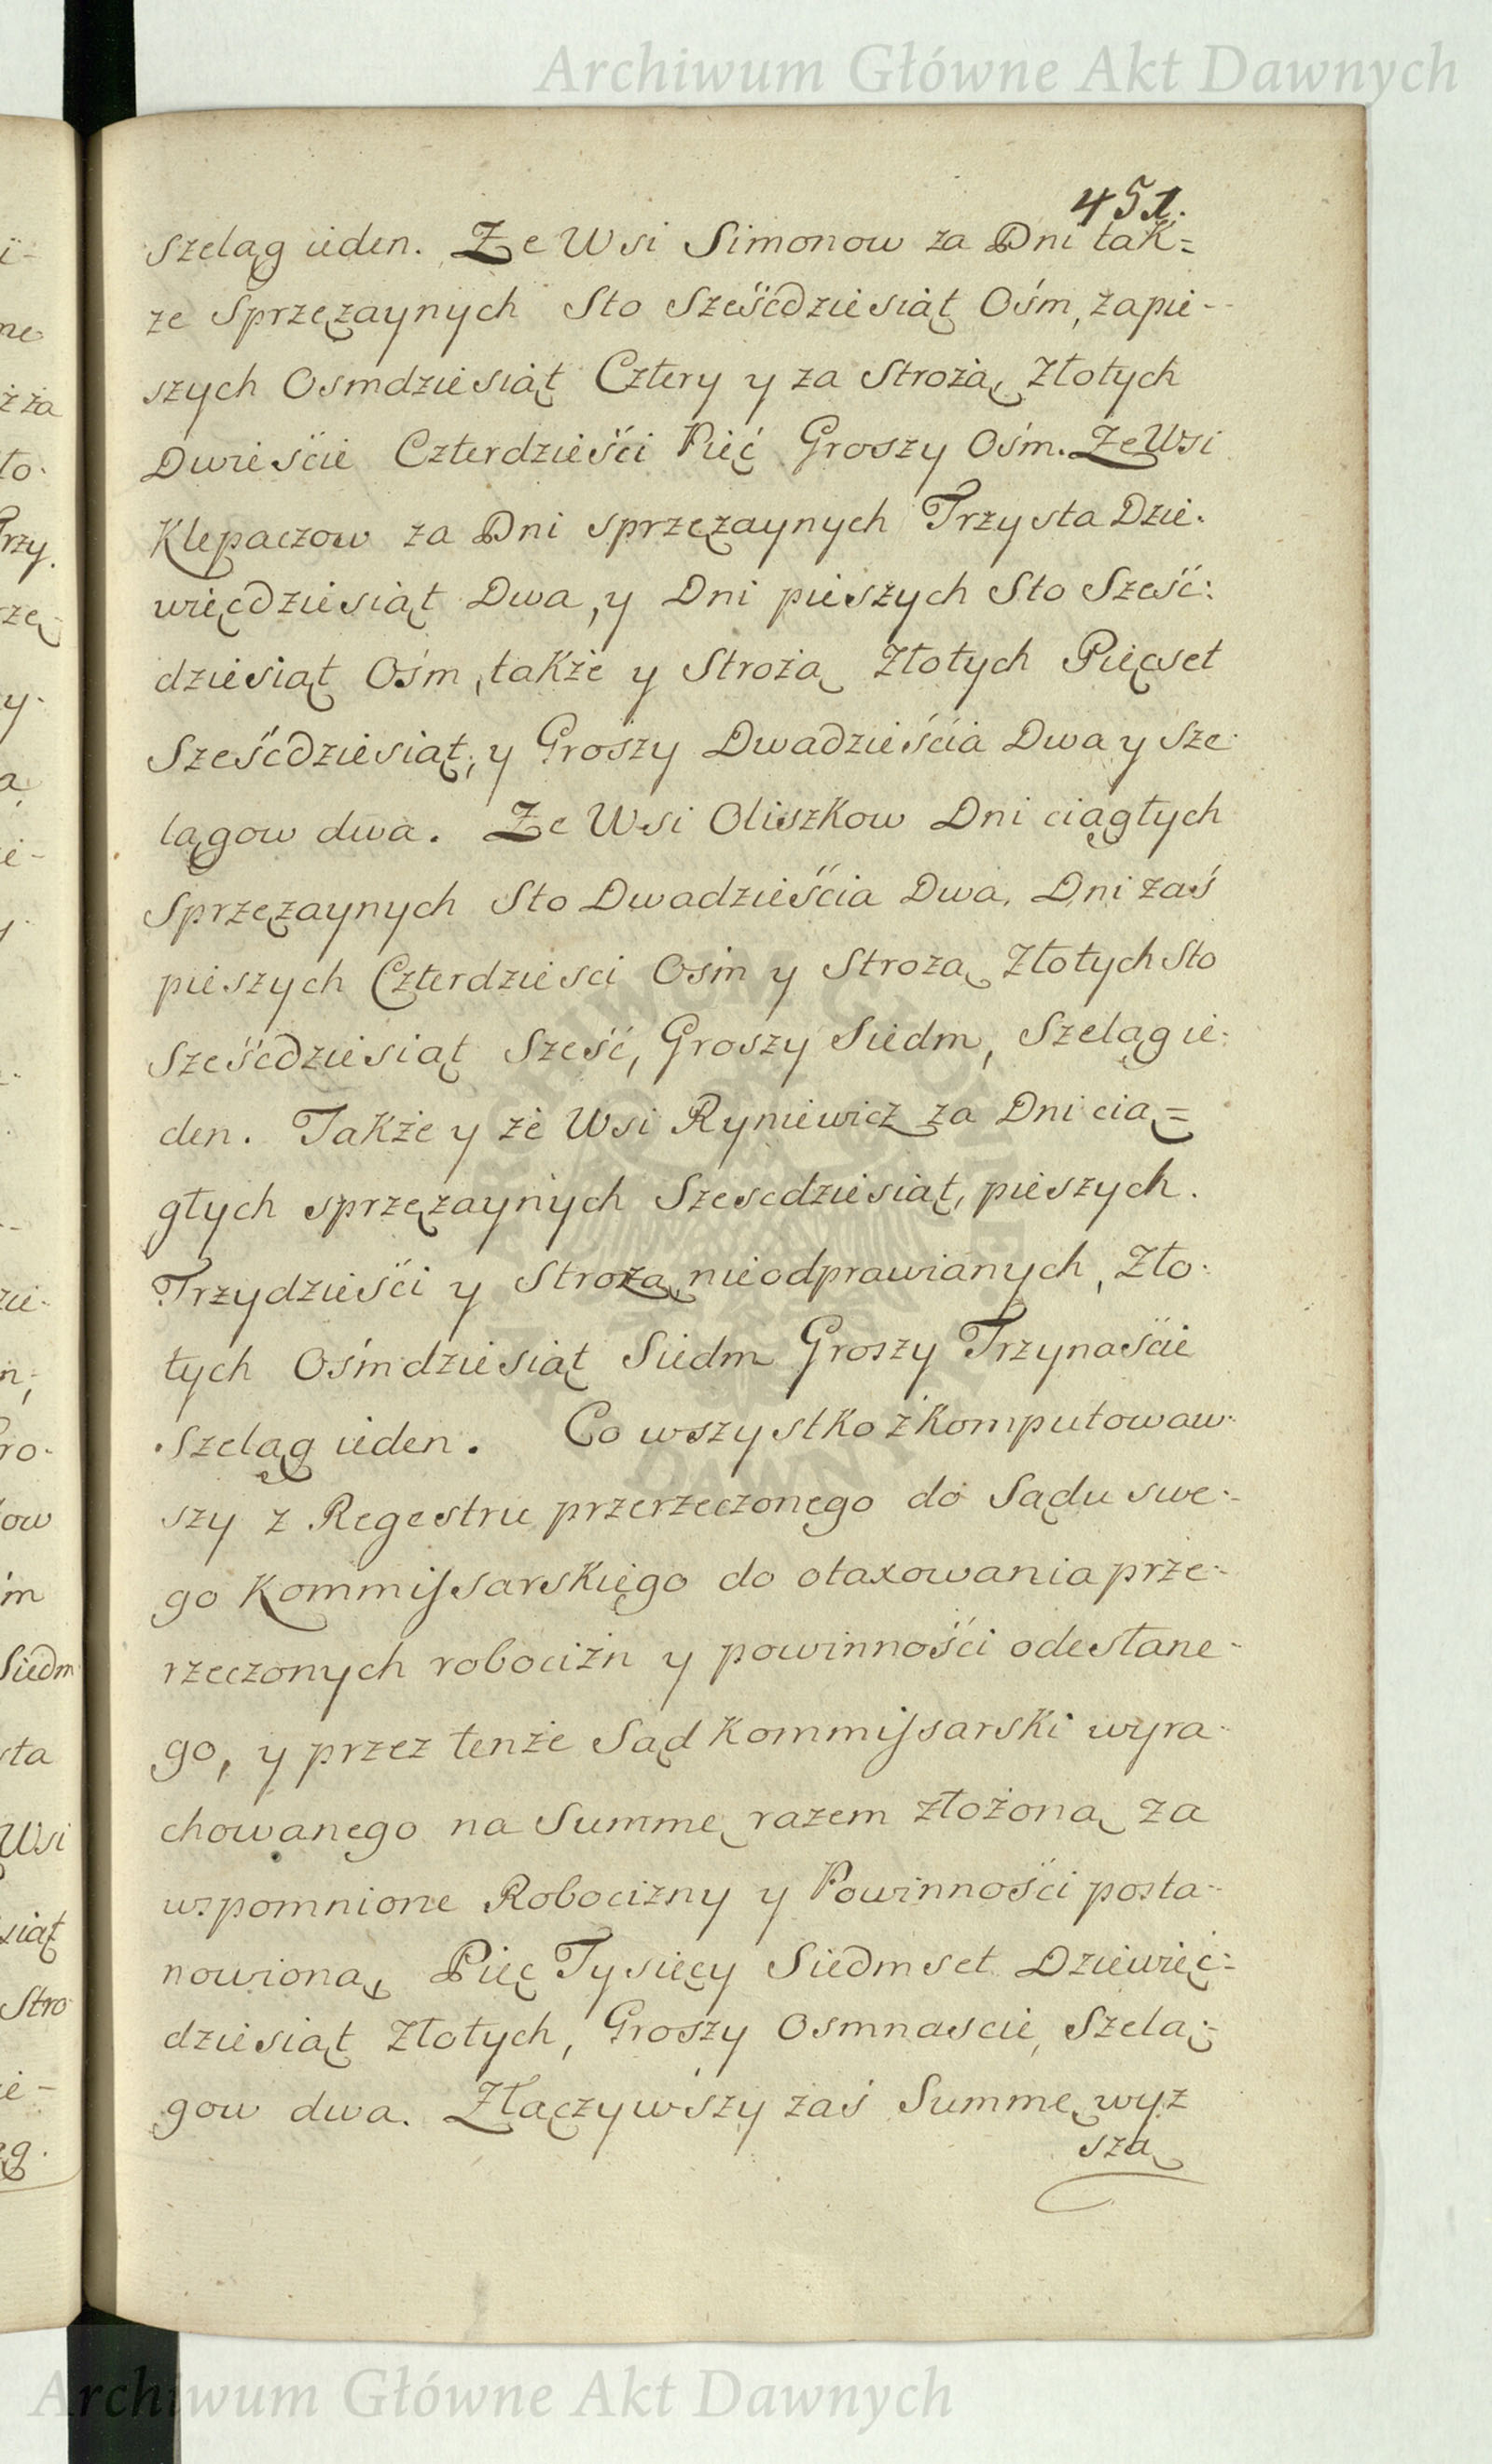 Archiwum Główne Akt Dawnych
451.
Szeląg ieden. Ze Wsi Simonow za Dni tak=
ze Sprzęzaynych Sto Sześćdziesiąt Ośm, za pie-
szych Osmdziesiąt Cztery y za Strożą Złotych
Dwieście Czterdzieści Pięć Groszy Ośm. Ze Wsi
Klepaczow za Dni sprzęzaynych Trzysta Dzie.
więćdziesiąt Dwa, y Dni pieszych Sto Sześć:
dziesiąt Ośm, także y Strożą Złotych Pięcset
Sześćdziesiąt, y Groszy Dwadzieścia Dwa y Sze-
lągow dwa. Ze Wsi Oliszkow Dni ciągłych
Sprzęzaynych Sto Dwadzieścia Dwa, Dni zaś
pieszych Czterdziesci Ośm y Strozą Złotych Sto
Sześćdziesiąt Sześć, Groszy Siedm, Szeląg ie:
den. Także y ze Wsi Ryniewicz za Dni cią=
głych sprzęzaynych Szescdziesiąt, pieszych.
Trzydzieści y Strozą nieodprawianych, Zło:
tych Ośmdziesiąt Siedm Groszy Trzynaście
Szeląg ieden. Co wszystko zkomputowaw-
szy z Regestru przerzeczonego do Sądu swe-
go Kommissarskiego do otaxowania prze-
rzeczonych robocizn y powinności odesłane-
go, y przez tenże Sąd Kommissarski wyra-
chowanego na Summę razem złożoną za
wspomnione Robocizny y Powinności posta-
nowioną, Pięc Tysięcy Siedmset Dziewięć=
dziesiąt Złotych, Groszy Osmnascie, Szelą-
gow dwa. Złączywszy zaś Summę wyz
szą
Archiwum Główne Akt Dawnych